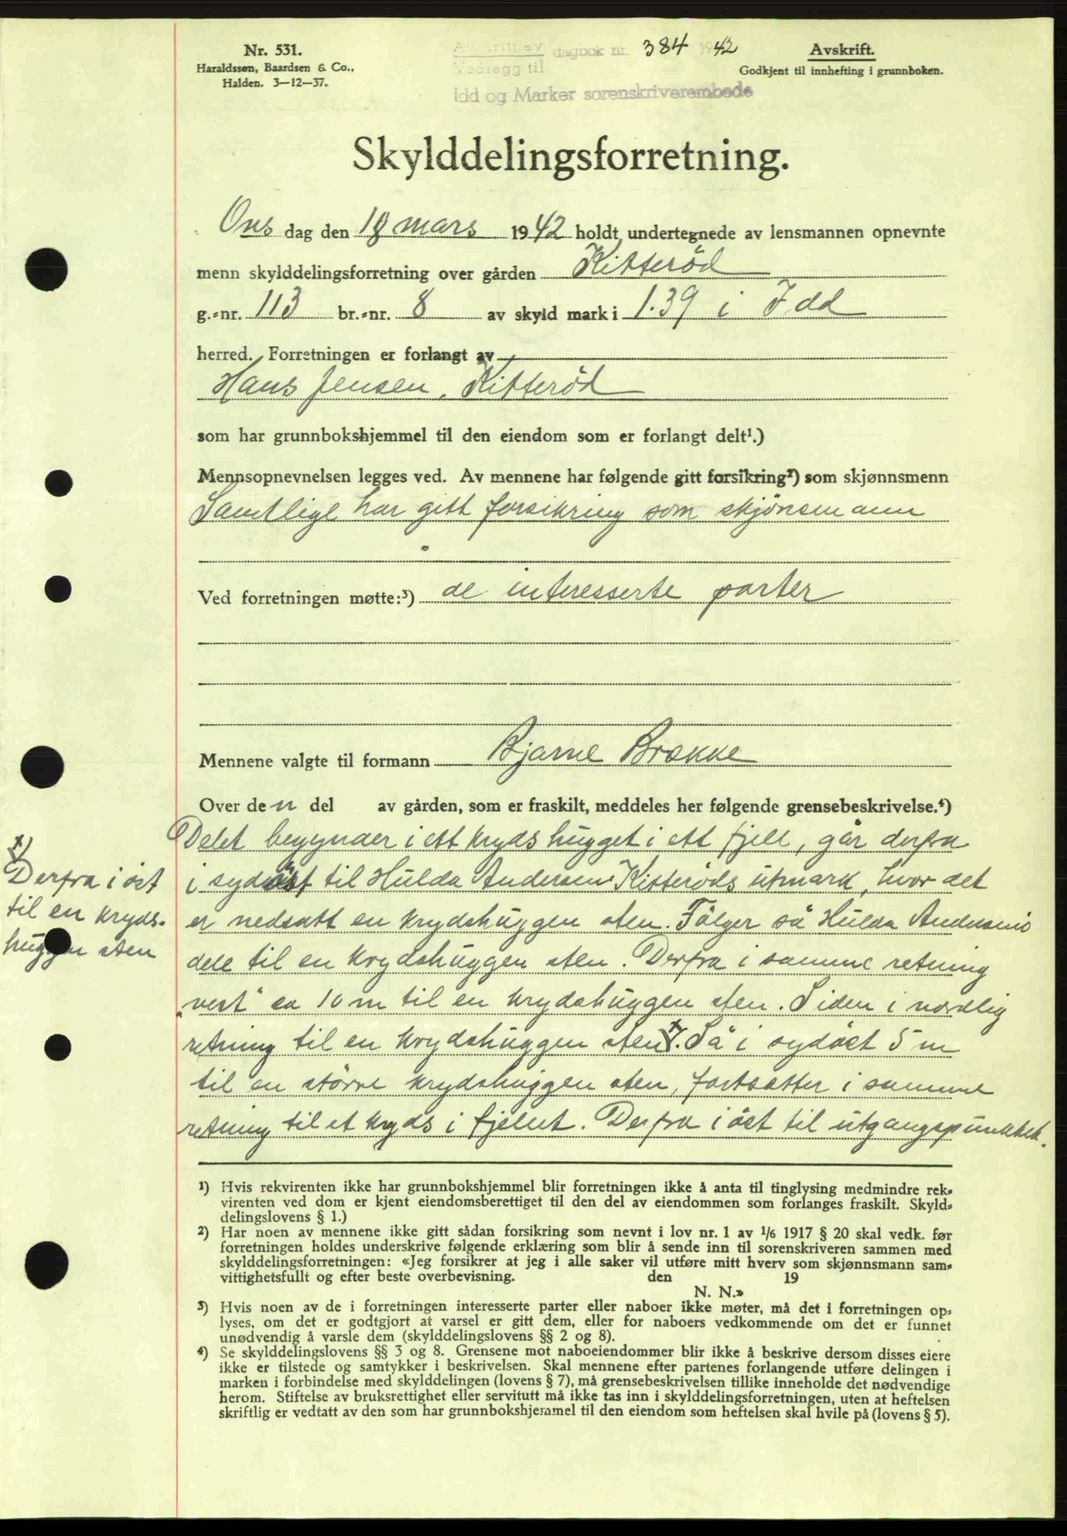 Nr. 531.
Haraldssen, Baardsen & Co.,
Halden. 3—12—37.
Avskrift av dagbok nr. 384 1942
Vedlegg til
Idd og Marker sorenskriverembede
Avskrift.
Godkjent til innhefting i grunnboken.
Skylddelingsforretning.
Ons dag den 18 mars 1942 holdt undertegnede av lensmannen opnevnte
menn skylddelingsforretning over gården Kitteröd
g.-nr. 113 br.-nr. 8 av skyld mark i 1.39 i Idd
herred. Forretningen er forlangt av
Hans Jensen, Kitteröd
som har grunnbokshjemmel til den eiendom som er forlangt delt¹.)
Mennsopnevnelsen legges ved. Av mennene har følgende gitt forsikring²) som skjønnsmenn
Samtlige har gitt forsikring som skjönsmann
Ved forretningen møtte:³) de interesserte parter
Mennene valgte til formann Bjarne Brække
Over den del av gården, som er fraskilt, meddeles her følgende grensebeskrivelse.⁴)
Delet begynder i ett kryds hugget i ett fjell, går derfra
i sydöst til Hulda Andersen Kitteröds utmark, hvor det
er nedsatt en krydshuggen sten. Fölger så Hulda Andersens
dele til en krydshuggen sten. Derfra i samme retning
"vest" ca 10 m til en krydshuggen sten. Siden i nordlig
retning til en krydshuggen sten x). Så i sydöst 5 m
til en större krydshuggen sten, fortsætter i samme
retning til et kryds i fjellet. Derfra i öst til utgangspunktet.
x)
Derfra i öst
til en kryds-
huggen sten
¹) Hvis rekvirenten ikke har grunnbokshjemmel blir forretningen ikke å anta til tinglysing medmindre rek-
virenten ved dom er kjent eiendomsberettiget til den del av eiendommen som forlanges fraskilt. Skyld-
delingslovens § 1.)
²) Har noen av mennene ikke gitt sådan forsikring som nevnt i lov nr. 1 av 1/6 1917 § 20 skal vedk. før
forretningen holdes underskrive følgende erklæring som blir å sende inn til sorenskriveren sammen med
skylddelingsforretningen: «Jeg forsikrer at jeg i alle saker vil utføre mitt hverv som skjønnsmann sam-
vittighetsfullt og efter beste overbevisning. den 19
N. N.»
³) Hvis noen av de i forretningen interesserte parter eller naboer ikke møter, må det i forretningen op-
lyses, om det er godtgjort at varsel er gitt dem, eller for naboers vedkommende om det er funnet
unødvendig å varsle dem (skylddelingslovens §§ 2 og 8).
⁴) Se skylddelingslovens §§ 3 og 8. Grensene mot naboeiendommer blir ikke å beskrive dersom disses eiere
ikke er tilstede og samtykker i beskrivelsen. Skal mennene efter partenes forlangende utføre delingen i
marken i forbindelse med skylddelingen (lovens § 7), må grensebeskrivelsen tillike inneholde det nødvendige
herom. Stiftelse av bruksrettighet eller servitutt må ikke tas inn i skylddelingsforretningen, uten at heftelsen
skriftlig er vedtatt av den som har grunnbokshjemmel til den eiendom som heftelsen skal hvile på (lovens § 5).